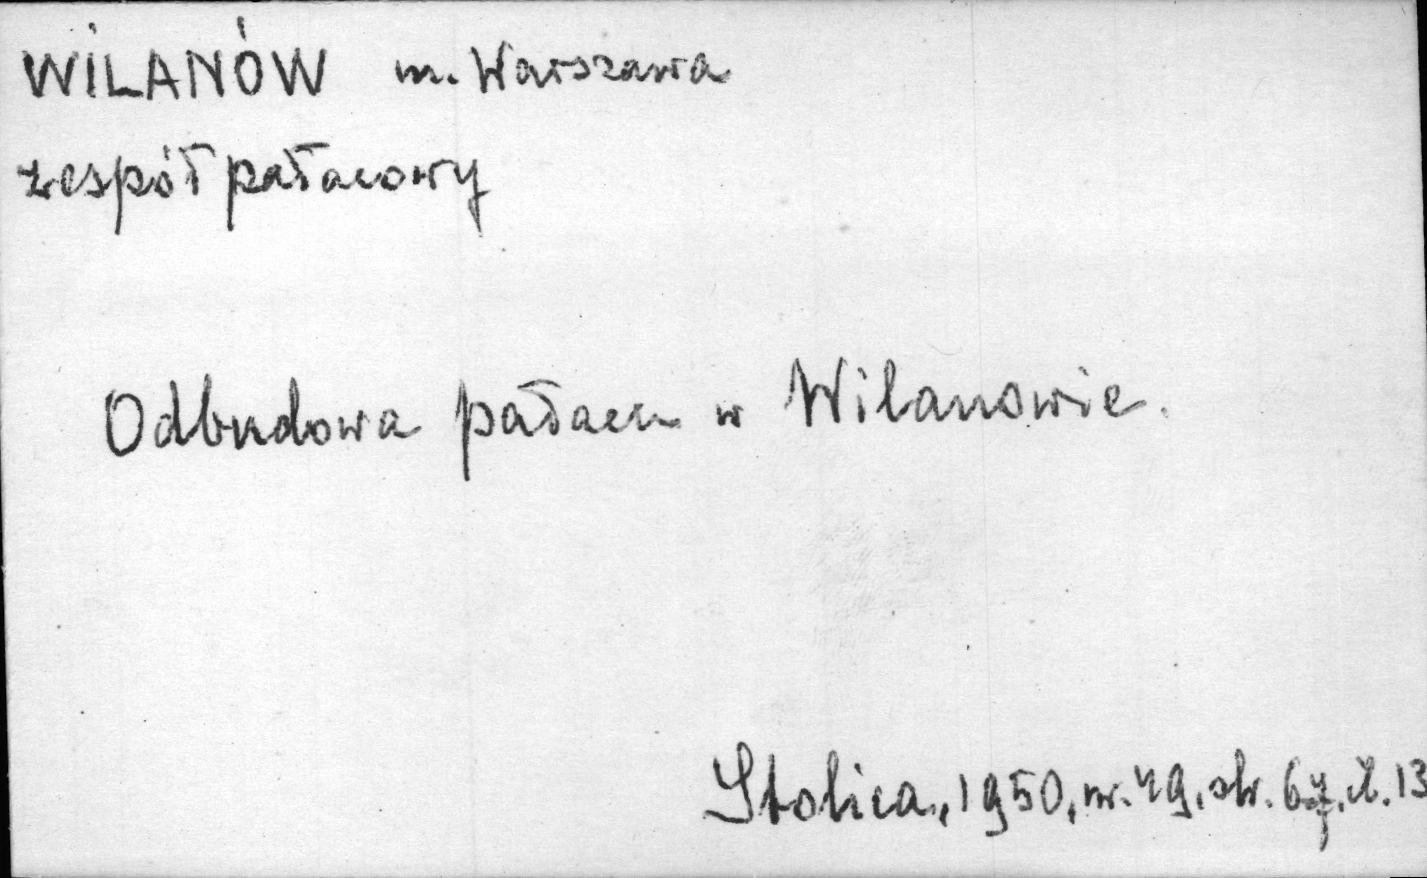 WILANÓW m. Warszawa
zespół pałacowy
Odbudowa pałacu w Wilanowie.
Stolica, 1950, nr. 49, str. 6-7, il. 13